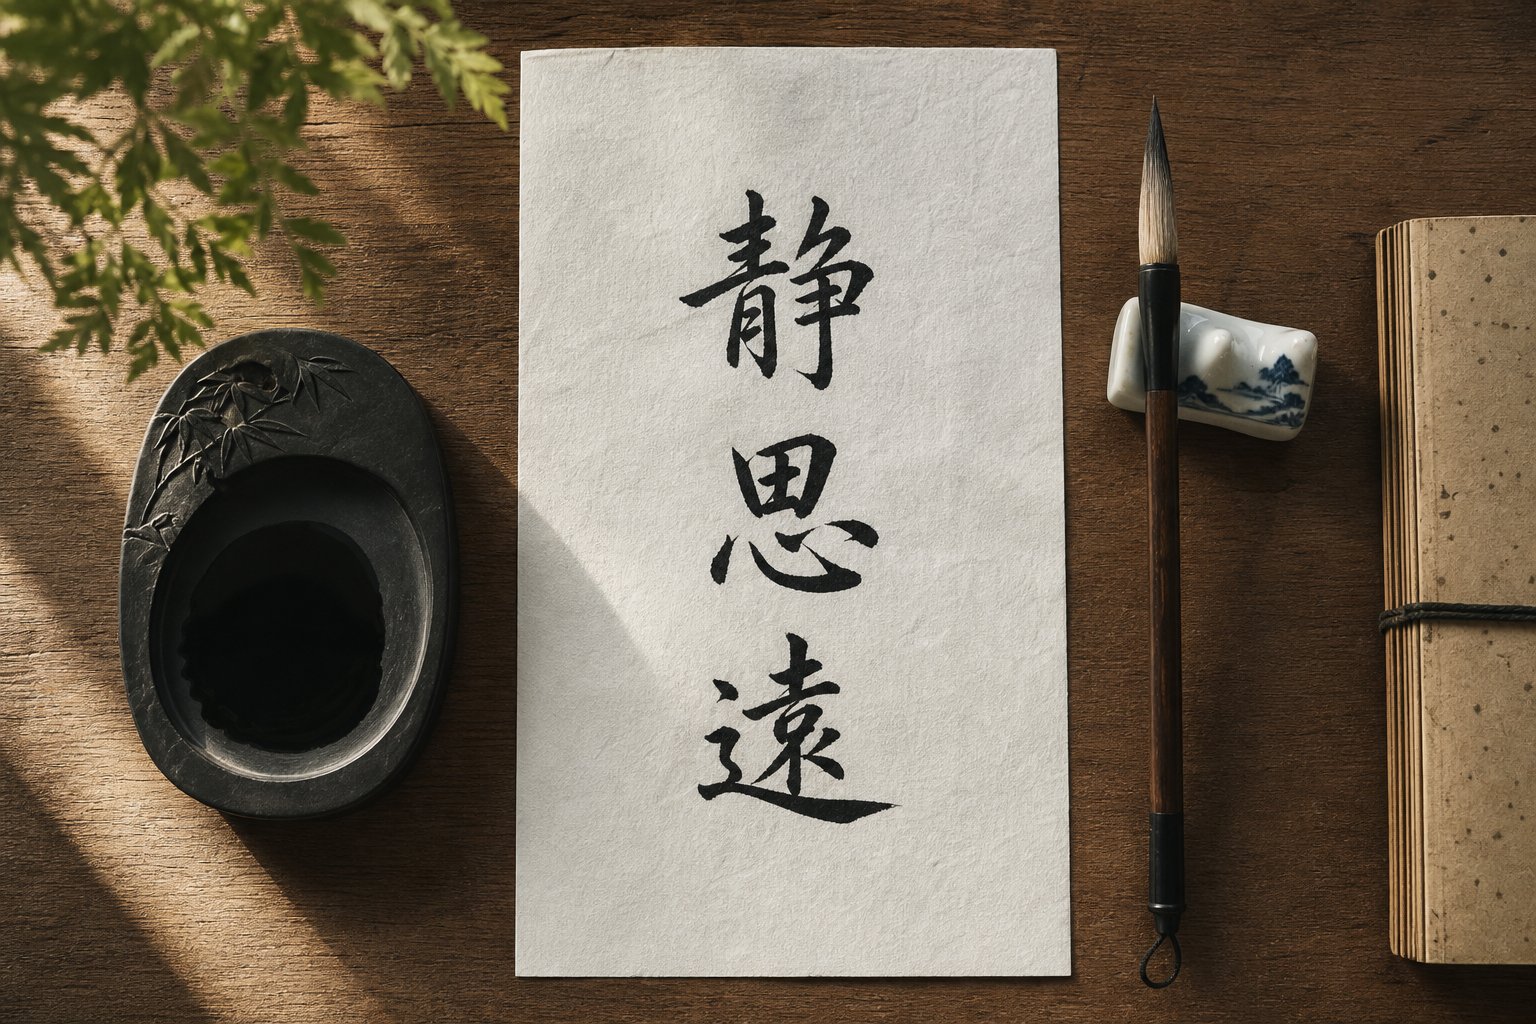 静思遠